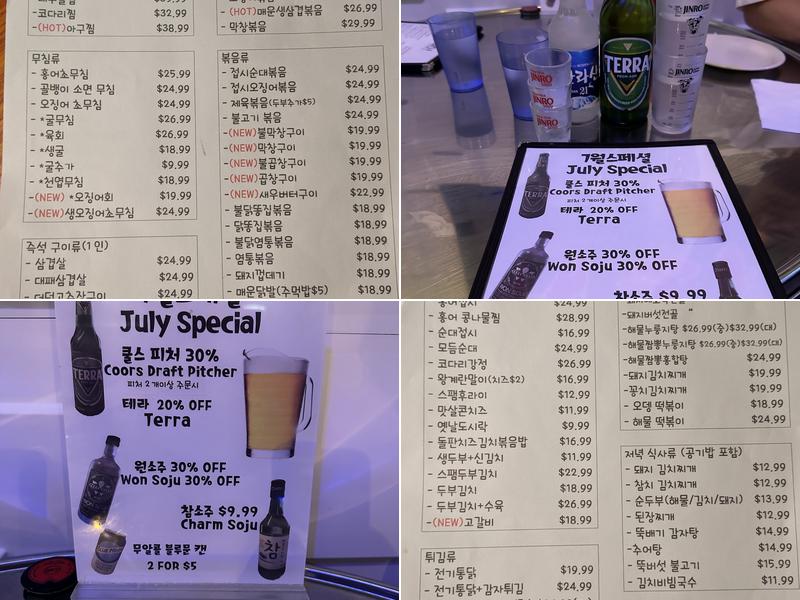 -코다리찜 $32.99
-(HOT)아구찜 $38.99
무침류
- 홍어초무침 $25.99
- 골뱅이 소면 무침 $24.99
- 오징어 초무침 $24.99
- *굴무침 $26.99
- *육회 $26.99
- *생굴 $18.99
- *굴추가 $9.99
- *천엽무침 $18.99
-(NEW) *오징어회 $19.99
-(NEW)생오징어초무침 $24.99
즉석 구이류(1인)
- 삼겹살 $24.99
- 대패삼겹살 $24.99
$24.99
-(HOT)매운생삼겹볶음 $26.99
- 막창볶음 $29.99
볶음류
- 접시순대볶음 $24.99
- 접시오징어볶음 $24.99
- 제육볶음(두부추가$5) $24.99
- 불고기 볶음 $24.99
-(NEW)불막창구이 $19.99
-(NEW)막창구이 $19.99
-(NEW)불곱창구이 $19.99
-(NEW)곱창구이 $19.99
-(NEW)새우버터구이 $22.99
- 불닭똥집볶음 $18.99
- 닭똥집볶음 $18.99
- 불닭염통볶음 $18.99
- 염통볶음 $18.99
- 돼지껍데기 $18.99
- 매운닭발(주먹밥$5) $18.99
JINRO
JINRO
JINRO
21
TERRA
JINRO
JINRO
7월스페셜
July Special
쿨스 피처 30%
Coors Draft Pitcher
피처 2개이상 주문시
테라 20% OFF
Terra
TERRA
원소주 30% OFF
Won Soju 30% OFF
참소주 $9.99
July Special
쿨스 피처 30%
Coors Draft Pitcher
피처 2개이상 주문시
TERRA
테라 20% OFF
Terra
원소주 30% OFF
Won Soju 30% OFF
참소주 $9.99
Charm Soju
참
무알콜 블루문 캔
2 FOR $5
$24.99
- 홍어 콩나물찜 $28.99
- 순대접시 $16.99
- 모듬순대 $24.99
- 코다리강정 $26.99
- 왕계란말이(치즈$2) $16.99
- 스팸후라이 $12.99
- 맛살콘치즈 $11.99
- 옛날도시락 $9.99
- 돌판치즈김치볶음밥 $16.99
- 생두부+신김치 $11.99
- 스팸두부김치 $22.99
- 두부김치 $18.99
- 두부김치+수육 $26.99
-(NEW)고갈비 $18.99
튀김류
- 전기통닭 $19.99
- 전기통닭+감자튀김 $24.99
-돼지버섯전골 "
-해물누룽지탕 $26.99(중)$32.99(대)
-해물짬뽕누룽지탕 $26.99(중)$32.99(대)
-해물짬뽕홍합탕 $24.99
-돼지김치찌개 $19.99
-꽁치김치찌개 $19.99
- 오뎅 떡볶이 $18.99
- 해물 떡볶이 $24.99
저녁 식사류 (공기밥 포함)
- 돼지 김치찌개 $12.99
- 참치 김치찌개 $12.99
- 순두부(해물/김치/돼지) $13.99
- 된장찌개 $12.99
- 뚝배기 감자탕 $14.99
-추어탕 $14.99
- 뚝버섯 불고기 $15.99
- 김치비빔국수 $11.99